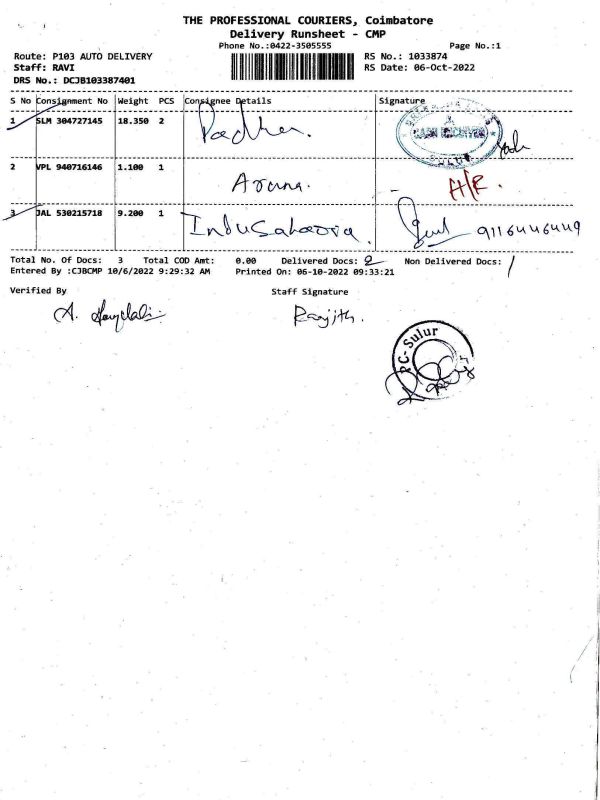 THE PROFESSIONAL COURIERS, Coimbatore
Delivery Runsheet - CMP
Phone No.:0422-3505555 Page No.:1
Route: P103 AUTO DELIVERY RS No.: 1033874
Staff: RAVI RS Date: 06-Oct-2022
DRS No.: DCJB103387401
S No Consignment No Weight PCS Consignee Details Signature
1 SLM 304727145 18.350 2
CASH RECEIVED
SULUR
2 VPL 940716146 1.100 1 Aruna. A/R.
3 JAL 530215718 9.200 1 9116446449
Total No. Of Docs: 3 Total COD Amt: 0.00 Delivered Docs: 2 Non Delivered Docs: 1
Entered By :CJBCMP 10/6/2022 9:29:32 AM Printed On: 06-10-2022 09:33:21
Verified By Staff Signature
Ranjith.
PC-Sulur